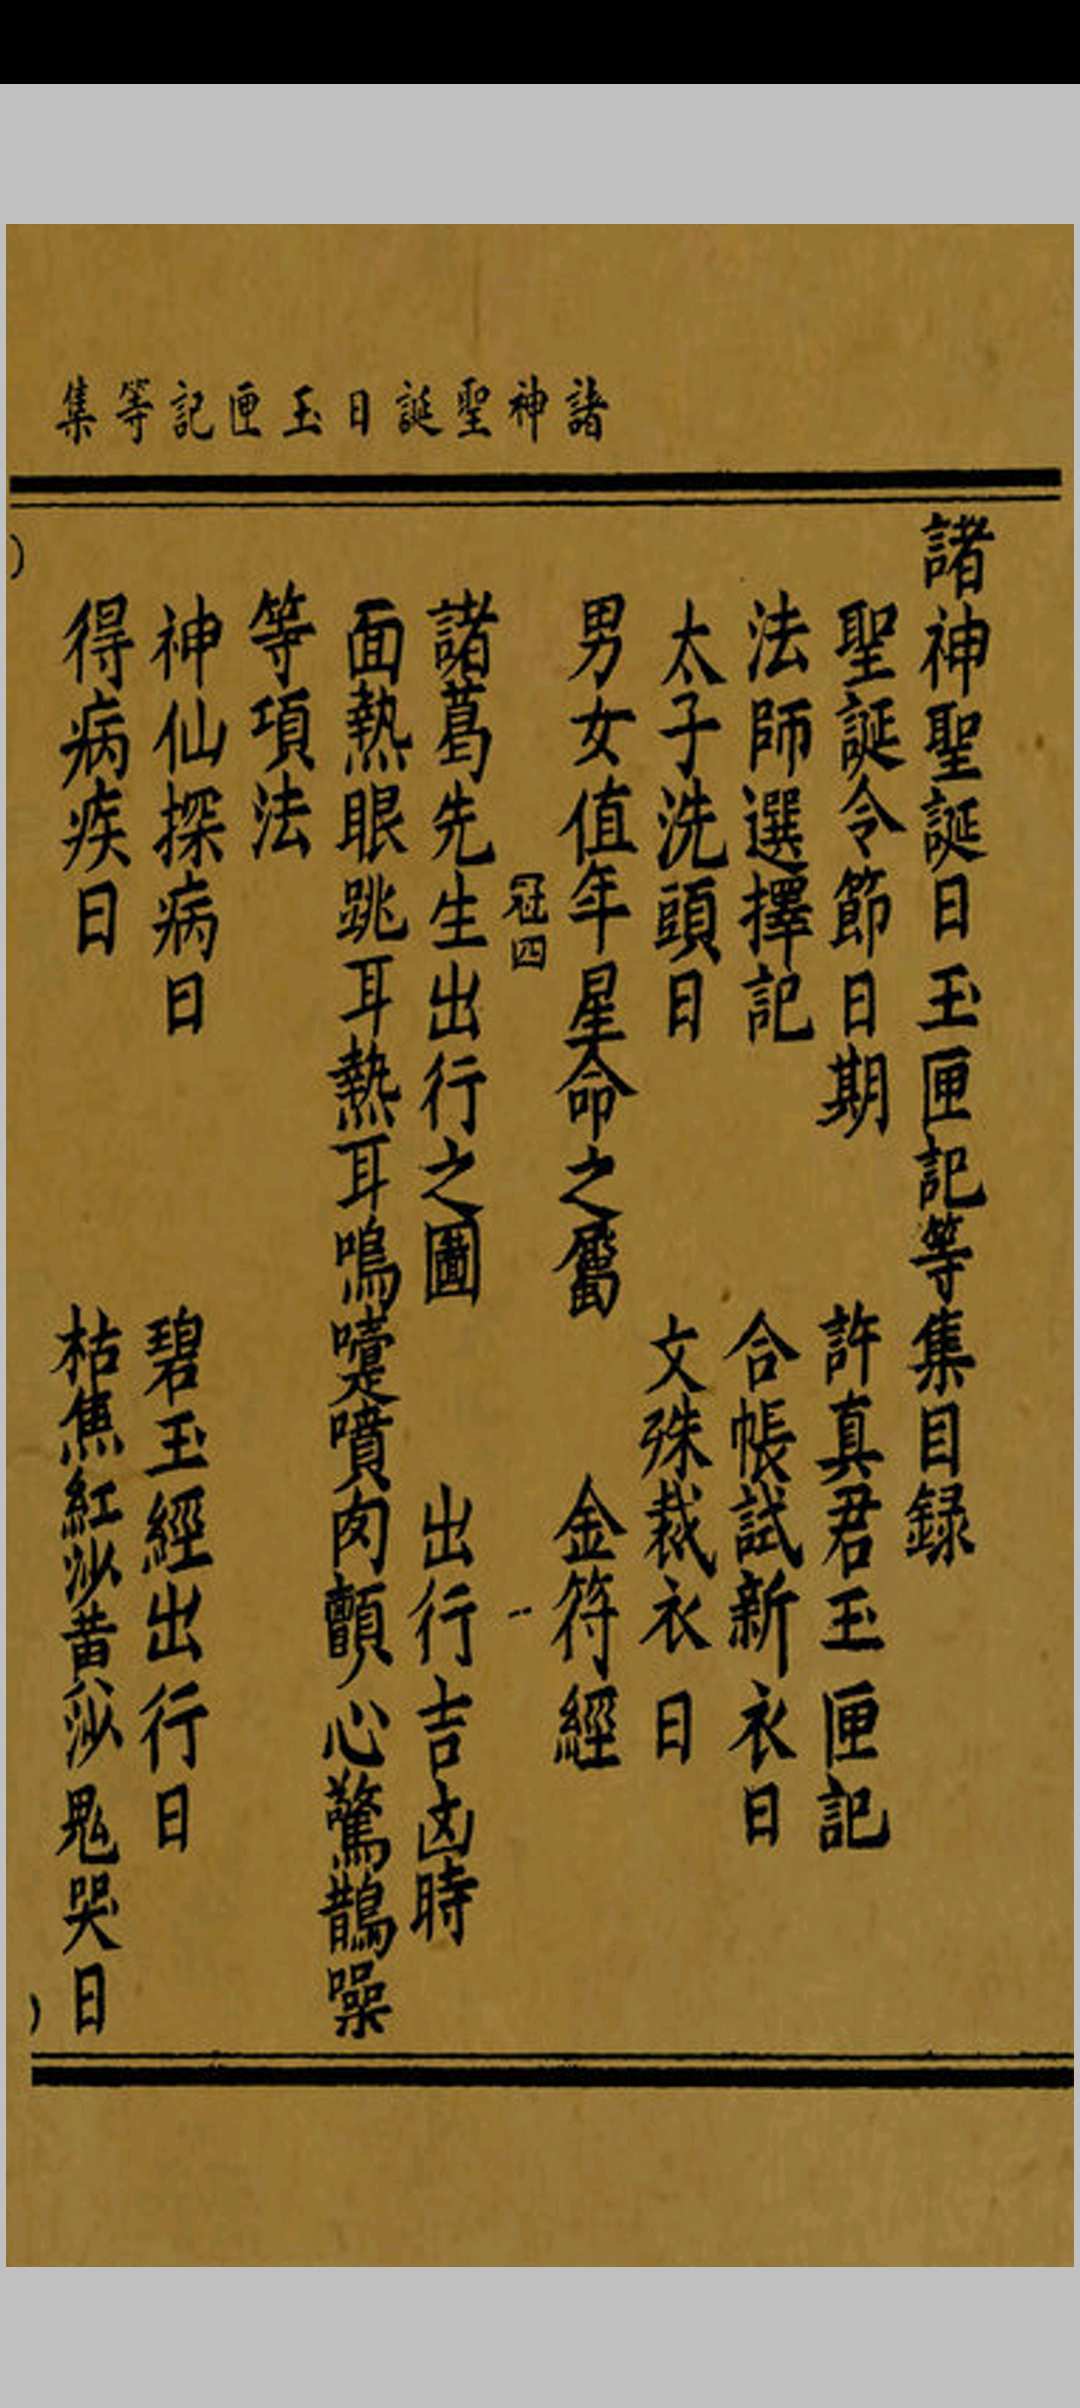 諸神聖誕日玉匣記等集
諸神聖誕日玉匣記等集目録
聖誕令節日期　許真君玉匣記
法師選擇記　合帳試新衣日
太子洗頭日　文殊裁衣日
男女值年星命之屬　金符經
冠四
諸葛先生出行之圖　出行吉凶時
面熱眼跳耳熱耳鳴嚏噴肉顫心驚鵲噪
等項法
神仙探病日　碧玉經出行日
得病疾日　枯焦紅沙黄沙鬼哭日